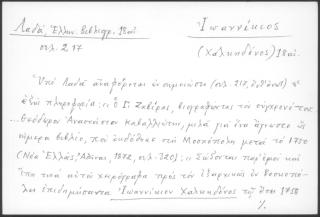 Λαδᾶ, Ἑλλην. Βιβλιογρ. 18αἰ.
σελ. 217
Ἰωαννίκιος
(Χαλκηδόνος) 18αἰ.
Ὑπὸ Λαδᾶ ἀναφέρεται ἐν σημειώσει (σελ. 217,
ἑξῆς πληροφορία: ὁ Γ. Ζαβίρας, βιογραφῶντας τὸν σύγχρονό του
Θεόδωρο Ἀναστασίου Καβαλλιώτη, μιλᾶ γιὰ ἕνα ἄγνωστο ὡς
σήμερα βιβλίο, ποὺ ἐκδόθηκε στὴ Μοσχόπολη μετὰ τὸ 1750
(Νέα Ἑλλάς, Ἀθῆναι, 1872, σελ. 320): Σώζονται παρ' ἐμοὶ καὶ
αὐτοῦ χειρόγραφα πρὸς τὸν ἐξαρχικῶς ἐν Βοσκοπό-
λει ἐπιδημήσαντα Ἰωαννίκιον Χαλκηδόνος τῷ ἔτει 1758
%.